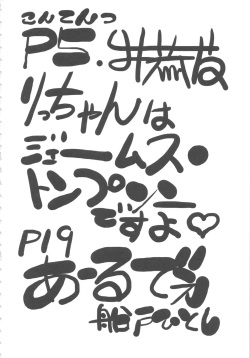 こんてんつ
P5.
りっちゃんは
ジェームス・
トンプソン
ですよ♡
P19
あ〜るでぃ
船戸ひとし